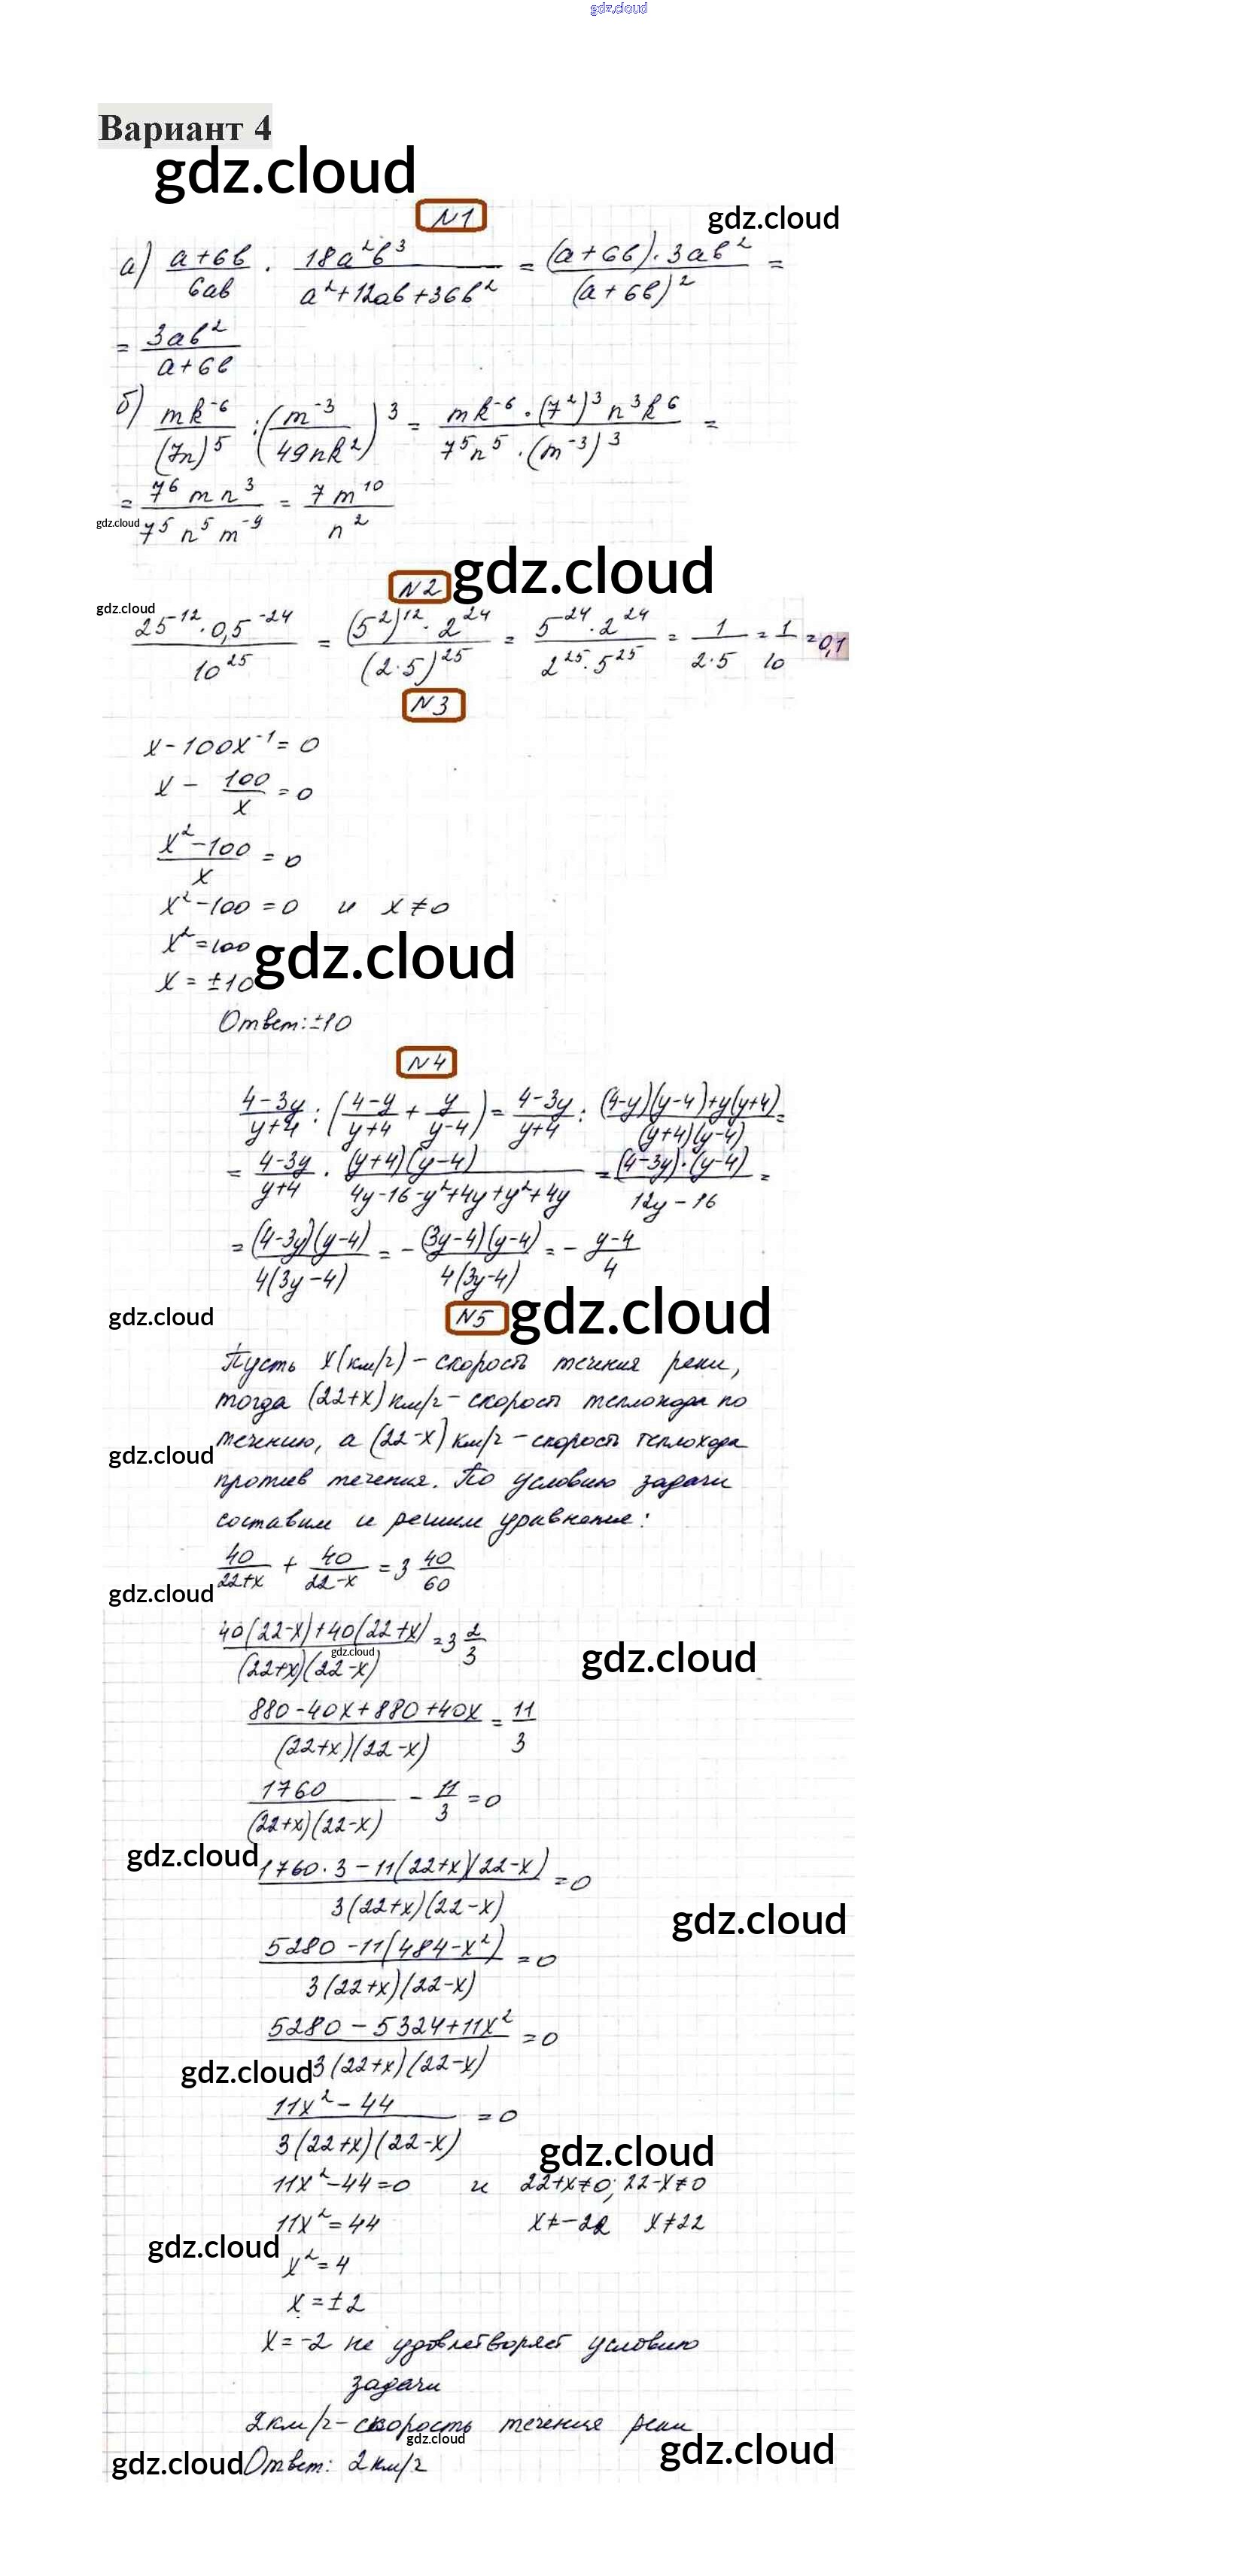 gdz.cloud
Вариант 4
gdz.cloud
N1
gdz.cloud
а) (a+6b)/(6ab) · (18a²b³)/(a²+12ab+36b²) = ((a+6b)·3ab²)/((a+6b)²) =
= (3ab²)/(a+6b)
б) (mk⁻⁶)/((7n)⁵) : (m⁻³/(49nk²))³ = (mk⁻⁶·(7²)³n³k⁶)/(7⁵n⁵·(m⁻³)³) =
= (7⁶mn³)/(7⁵n⁵m⁻⁹) = (7m¹⁰)/n²
gdz.cloud
N2
gdz.cloud
gdz.cloud
(25⁻¹²·0,5⁻²⁴)/10²⁵ = ((5²)¹²·2²⁴)/((2·5)²⁵) = (5⁻²⁴·2²⁴)/(2²⁵·5²⁵) = 1/(2·5) = 1/10 = 0,1
N3
x-100x⁻¹=0
x - 100/x = 0
(x²-100)/x = 0
x²-100=0 и x≠0
x²=100
gdz.cloud
x=±10
Ответ: ±10
N4
(4-3y)/(y+4) : ((4-y)/(y+4) + y/(y-4)) = (4-3y)/(y+4) : ((4-y)(y-4)+y(y+4))/((y+4)(y-4)) =
= (4-3y)/(y+4) · ((y+4)(y-4))/(4y-16-y²+4y+y²+4y) = ((4-3y)·(y-4))/(12y-16) =
= ((4-3y)(y-4))/(4(3y-4)) = -((3y-4)(y-4))/(4(3y-4)) = -(y-4)/4
gdz.cloud
N5
gdz.cloud
Пусть x(км/ч) - скорость течения реки,
тогда (22+x) км/ч - скорость теплохода по
gdz.cloud
течению, а (22-x) км/ч - скорость теплохода
против течения. По условию задачи
составим и решим уравнение:
40/(22+x) + 40/(22-x) = 3 40/60
gdz.cloud
(40(22-x)+40(22+x))/((22+x)(22-x)) = 3 2/3
gdz.cloud
gdz.cloud
(880-40x+880+40x)/((22+x)(22-x)) = 11/3
1760/((22+x)(22-x)) - 11/3 = 0
gdz.cloud
(1760·3-11(22+x)(22-x))/(3(22+x)(22-x)) = 0
gdz.cloud
(5280-11(484-x²))/(3(22+x)(22-x)) = 0
(5280-5324+11x²)/(3(22+x)(22-x)) = 0
gdz.cloud
(11x²-44)/(3(22+x)(22-x)) = 0
gdz.cloud
11x²-44=0 и 22+x≠0; 22-x≠0
11x²=44 x≠-22 x≠22
gdz.cloud
x²=4
x=±2
x=-2 не удовлетворяет условию
задачи
2км/ч - скорость течения реки
gdz.cloud
gdz.cloud
gdz.cloud
Ответ: 2км/ч